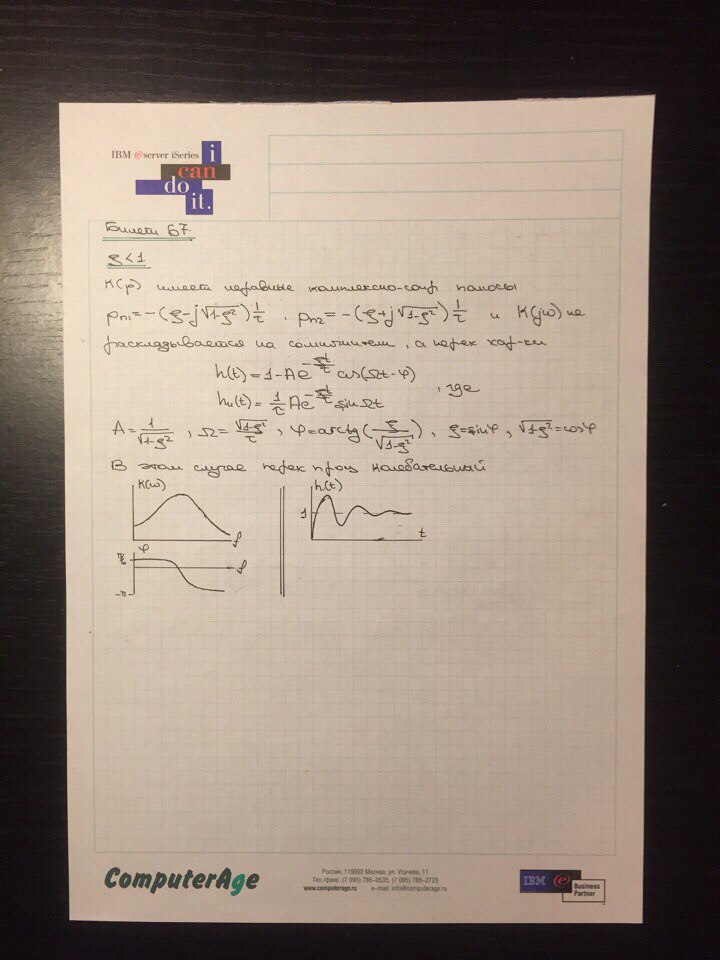 IBM @server iSeries i
can
do
it.
Билет 67.
ξ<1
K(p) имеет неравные комплексно-сопр полюсы
pп1=-(ξ-j√1-ξ²)1/τ, pп2=-(ξ+j√1-ξ²)1/τ и K(jω) не
раскладывается на сомножители, а перех хар-ки
h(t)=1-Ae^-ξt/τ cos(Ωt-φ)
hи(t)=1/τ Ae^-ξt/τ sin Ωt , где
A=1/√1-ξ², Ω=√1-ξ²/τ, φ=arctg(ξ/√1-ξ²), ξ=sinφ, √1-ξ²=cosφ
В этом случае перех проц колебательный
K(ω)
f
h(t)
1
t
φ
f
-π
ComputerAge
Россия, 119992 Москва, ул. Усачева, 11
Тел./факс: (7 095) 785-0535, (7 095) 785-2723
www.computerage.ru e-mail: info@computerage.ru
IBM (e) Business
Partner